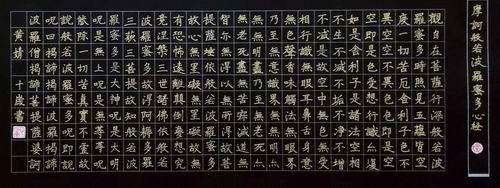 摩訶般若波羅蜜多心經
觀自在菩薩行深般若波
羅蜜多時照見五蘊皆空
度一切苦厄舍利子色不
異空空不異色色即是空
空即是色受想行識亦復
如是舍利子是諸法空相
不生不滅不垢不淨不增
不減是故空中無色無受
想行識無眼耳鼻舌身意
無色聲香味觸法無眼界
乃至無意識界無無明亦
無無明盡乃至無老死亦
無老死盡無苦集滅道無
智亦無得以無所得故菩
提薩埵依般若波羅蜜多
故心無罣礙無罣礙故無
有恐怖遠離顛倒夢想究
竟涅槃三世諸佛依般若
波羅蜜多故得阿耨多羅
三藐三菩提故知般若波
羅蜜多是大神呪是大明
呪是無上呪是無等等呪
能除一切苦真實不虛故
說般若波羅蜜多呪即說
呪曰揭諦揭諦波羅揭諦
波羅僧揭諦菩提薩婆訶
黃婧 十歲書